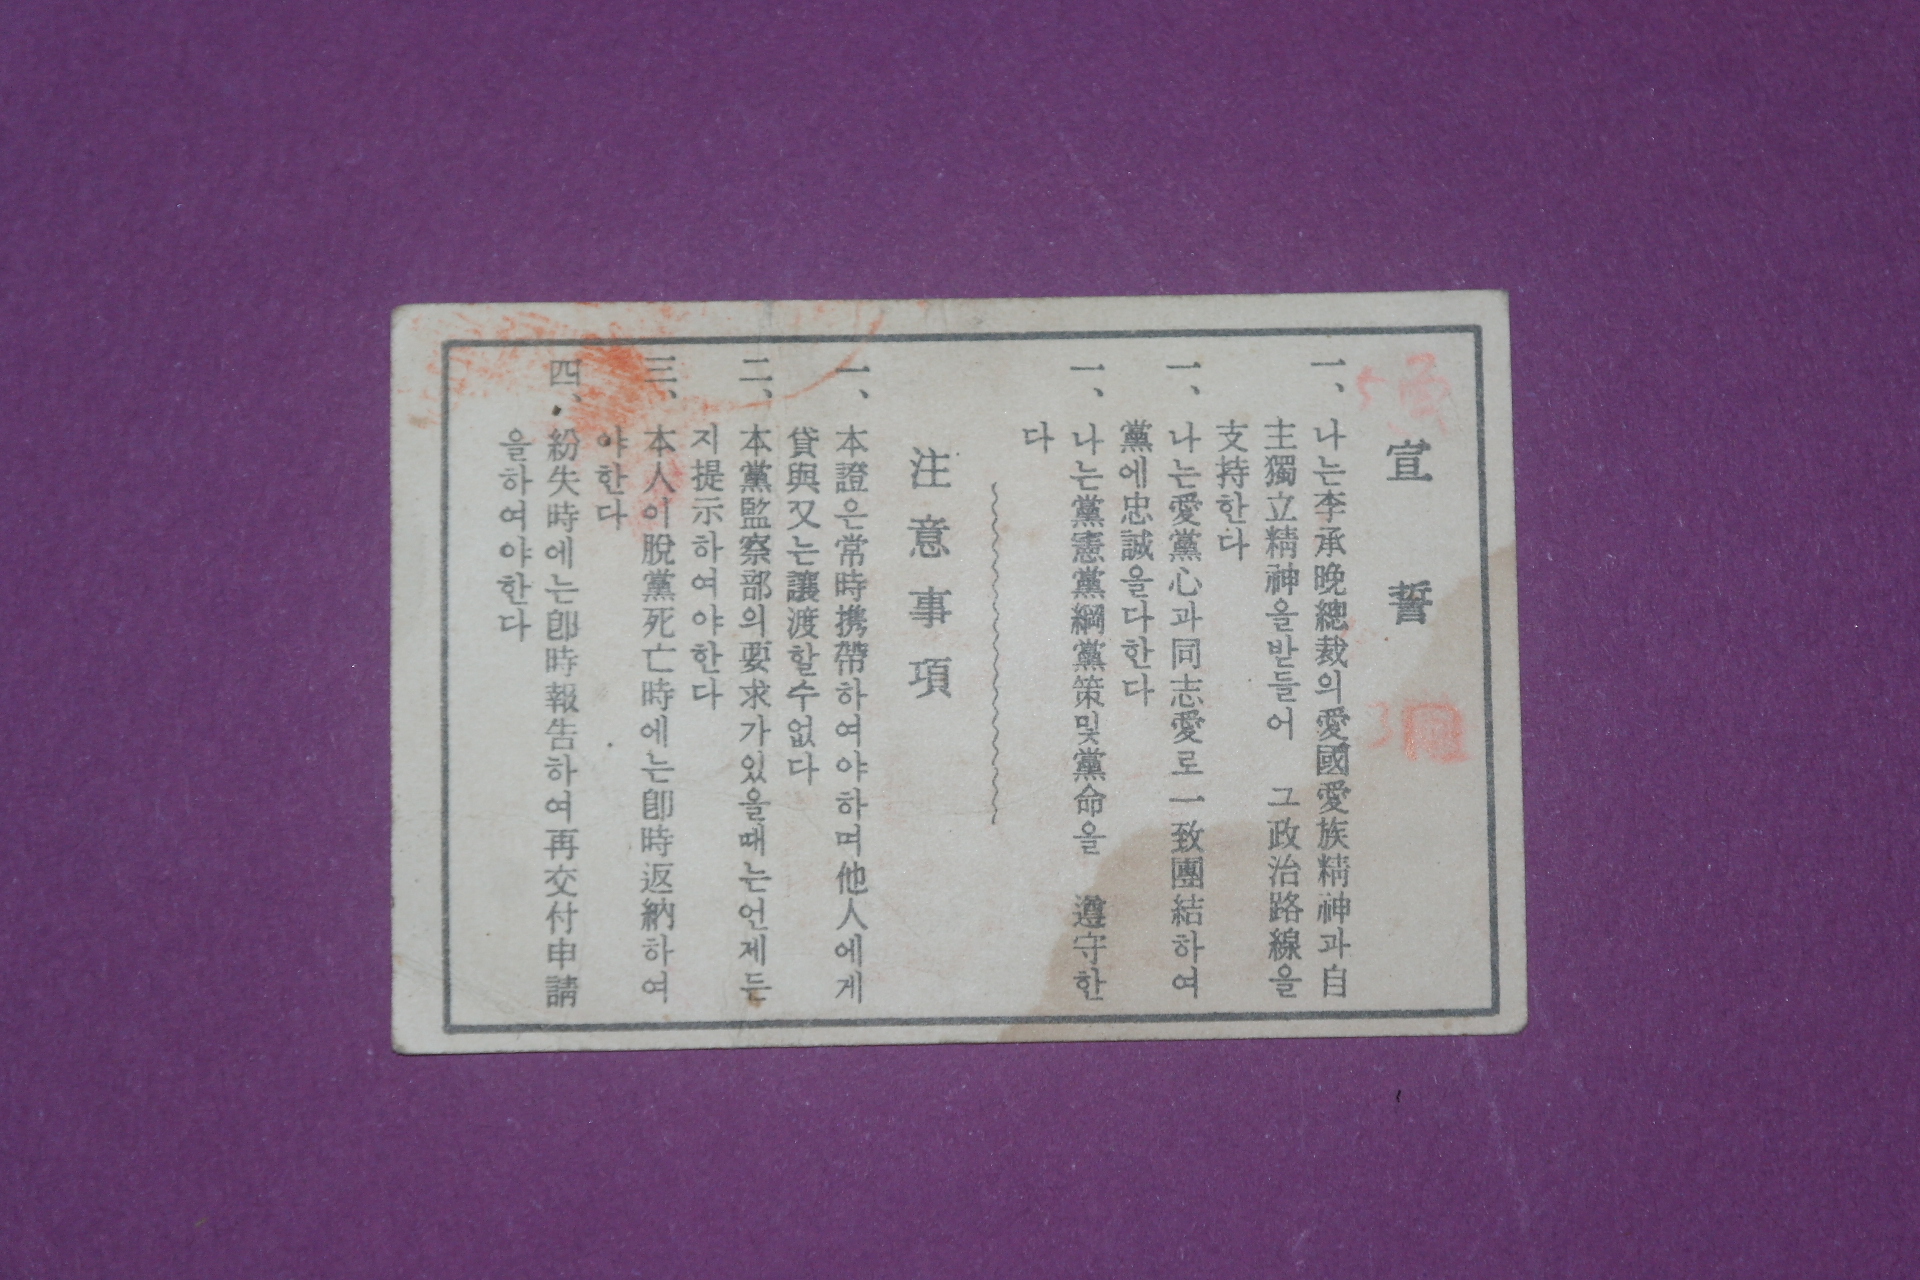 宣誓
一、나는李承晩總裁의愛國愛族精神과自
主獨立精神을받들어 그政治路線을
支持한다
一、나는愛黨心과同志愛로一致團結하여
黨에忠誠을다한다
一、나는黨憲黨綱黨策및黨命을 遵守한
다
注意事項
一、本證은常時携帶하여야하며他人에게
貸與又는讓渡할수없다
二、本黨監察部의要求가있을때는언제든
지提示하여야한다
三、本人이脫黨死亡時에는卽時返納하여
야한다
四、紛失時에는卽時報告하여再交付申請
을하여야한다